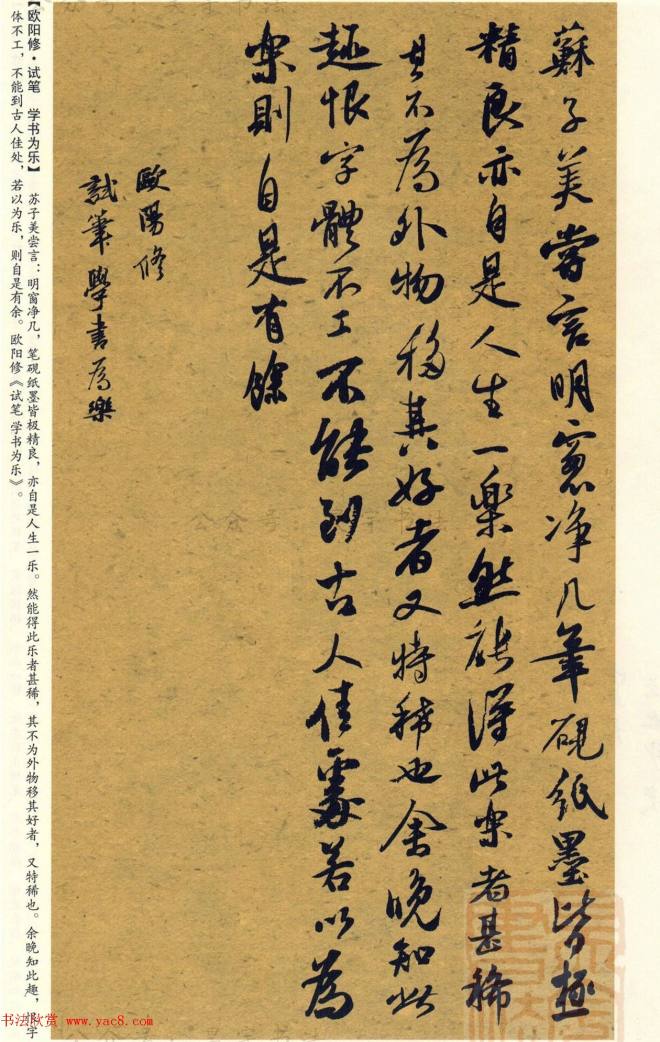 蘇子美嘗言明窗净几筆硯紙墨皆極
精良亦自是人生一樂然能得此樂者甚稀
其不為外物移其好者又特稀也余晚知此
趣恨字體不工不能到古人佳處若以為
樂則自是有餘
歐陽修
試筆學書為樂
【欧阳修·试笔 学书为乐】 苏子美尝言：明窗净几，笔砚纸墨皆极精良，亦自是人生一乐。然能得此乐者甚稀，其不为外物移其好者，又特稀也。余晚知此趣，恨字
体不工，不能到古人佳处，若以为乐，则自是有余。欧阳修《试笔 学书为乐》。
书法欣赏 www.yac8.com